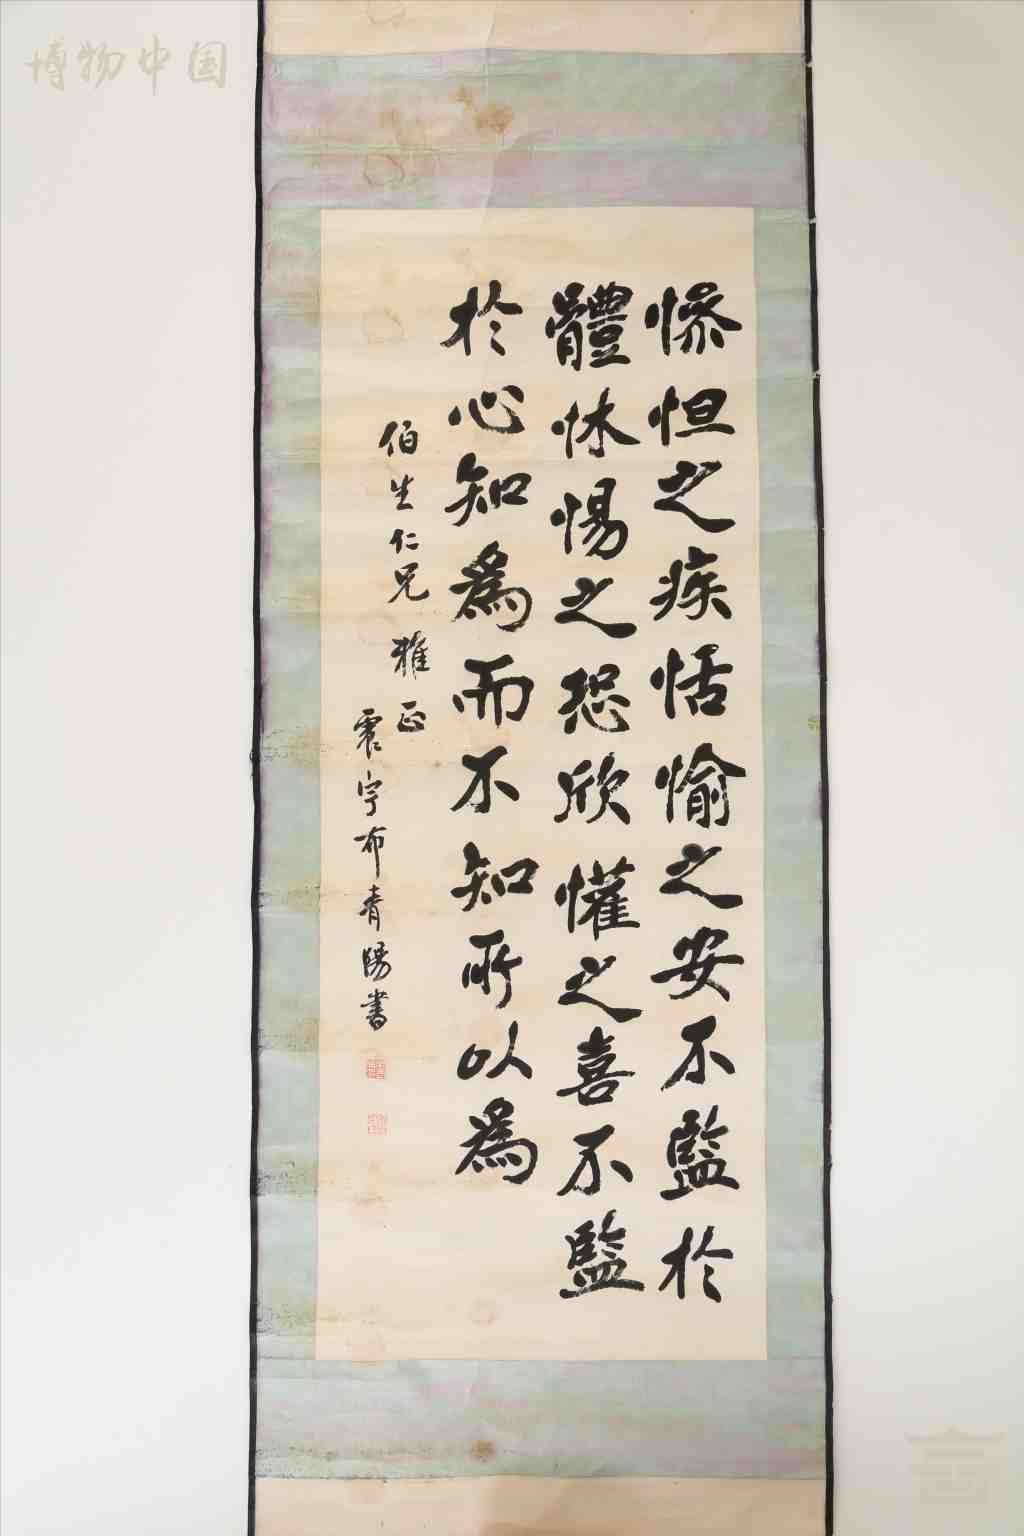 博物中国
惨怛之疾恬愉之安不監於
體怵惕之恐欣懽之喜不監
於心知爲而不知所以爲
伯生仁兄 雅正
震宇布青陽書